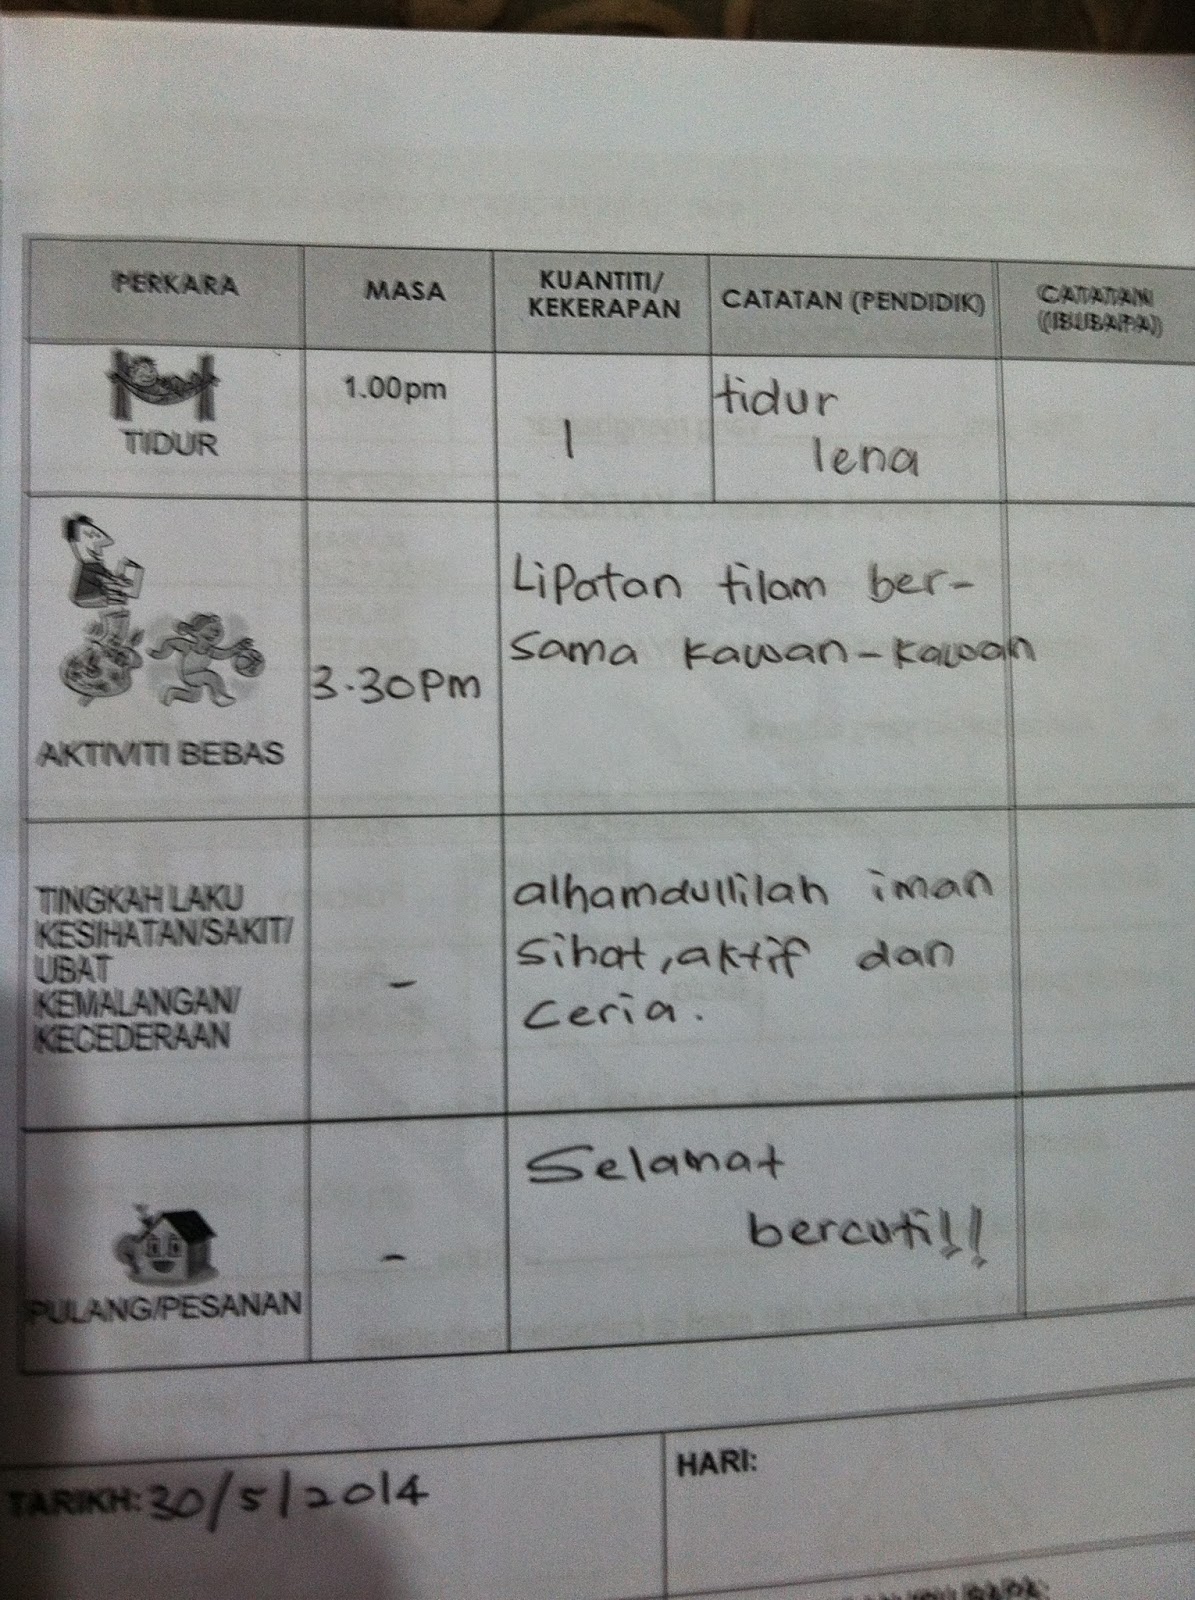 PERKARA MASA KUANTITI/ KEKERAPAN CATATAN (PENDIDIK) CATATAN (IBUBAPA)
TIDUR
1.00pm
1
tidur
lena
AKTIVITI BEBAS
3.30pm
Lipatan tilam ber-
sama kawan-kawan
TINGKAH LAKU
KESIHATAN/SAKIT/
UBAT
KEMALANGAN/
KECEDERAAN
-
alhamdullilah iman
sihat, aktif dan
ceria.
PULANG/PESANAN
-
Selamat
bercuti!!
TARIKH: 30/5/2014
HARI: